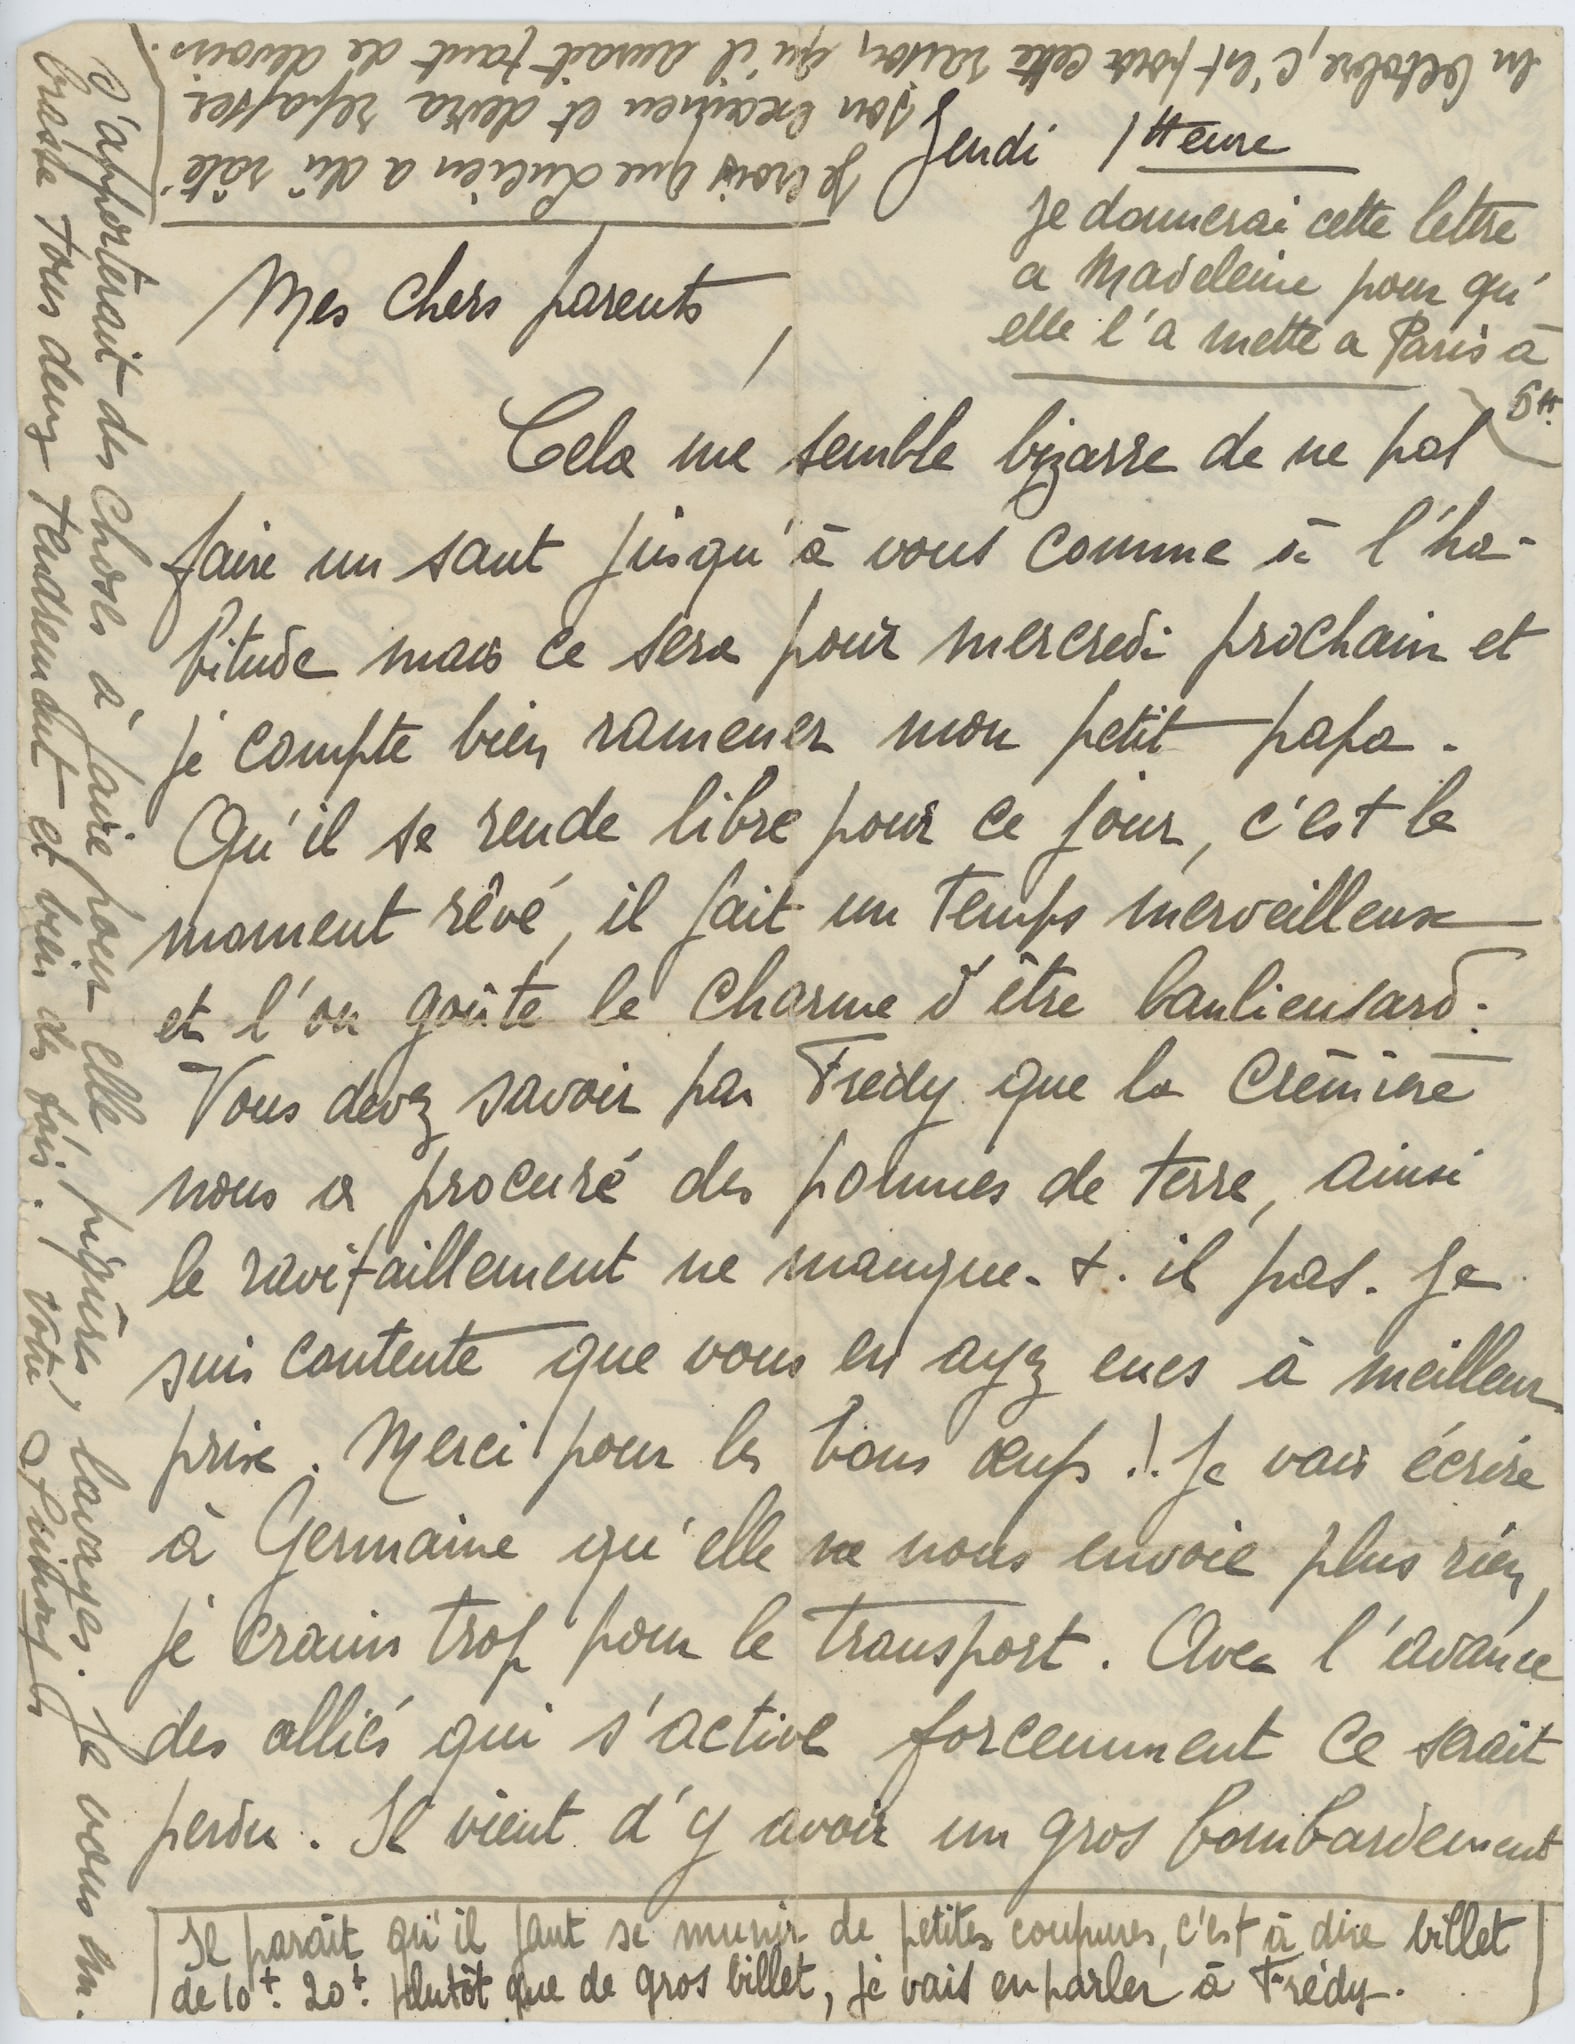 Jendi 1 Heure
Je donnerai cette lettre
a Madeleine pour qu'
elle l'a mette a Paris à
5H.
Mes chers parents,
Cela me semble bizarre de ne pas
faire un saut jusqu'à vous comme à l'ha-
bitude mais ce sera pour mercredi prochain et
je compte bien ramener mon petit papa.
Qu'il se rende libre pour ce jour, c'est le
moment rêvé, il fait un temps merveilleux
et l'on goûte le charme d'être banlieusard.
Vous devez savoir par Fredy que la crémière
nous a procuré des pommes de terre, ainsi
le ravitaillement ne manque-t-il pas. Je
suis contente que vous en ayez eues à meilleur
prix. Merci pour les bons œufs !. Je vais écrire
à Germaine qu'elle ne nous envoie plus rien,
je crains trop pour le transport. Avec l'avance
des alliés qui s'active forcemment ce serait
perdu. Il vient d'y avoir un gros bombardement
Il paraît qu'il faut se munir de petites coupures, c'est à dire billet
de 10f. 20f. plutôt que de gros billet, je vais en parler à Frédy.
d'apporterait des choses à faire pour elle piqûres, lavages. Je vous em-
brasse tous deux tendrement et bien des fois. Votre
Je crois que Lucien a dû râté
son examen et devra repasser
en Octobre, c'est pour cette raison qu'il aurait tant de devoirs.